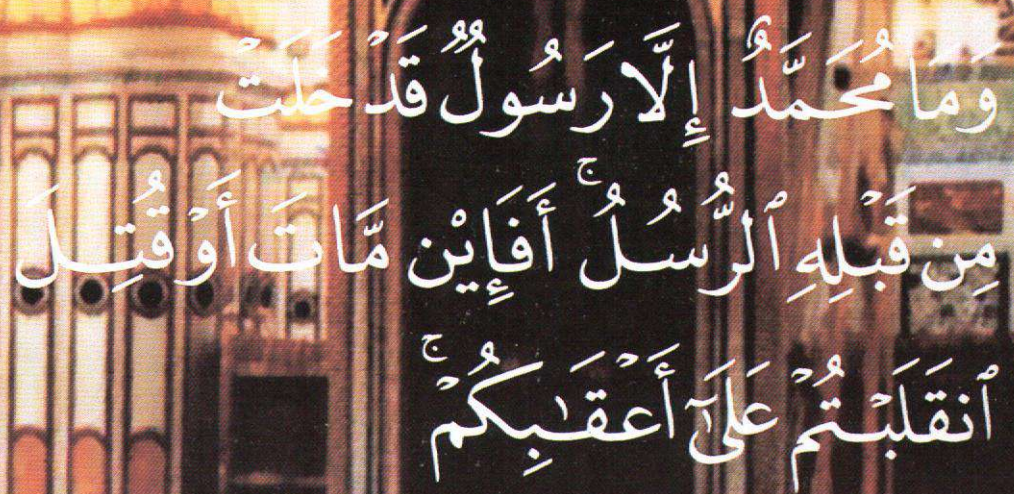 وَمَا مُحَمَّدٌ إِلَّا رَسُولٌ قَدْ خَلَتْ
مِن قَبْلِهِ ٱلرُّسُلُ ۚ أَفَإِي۟ن مَّاتَ أَوْ قُتِلَ
ٱنقَلَبْتُمْ عَلَىٰٓ أَعْقَـٰبِكُمْ ۚ